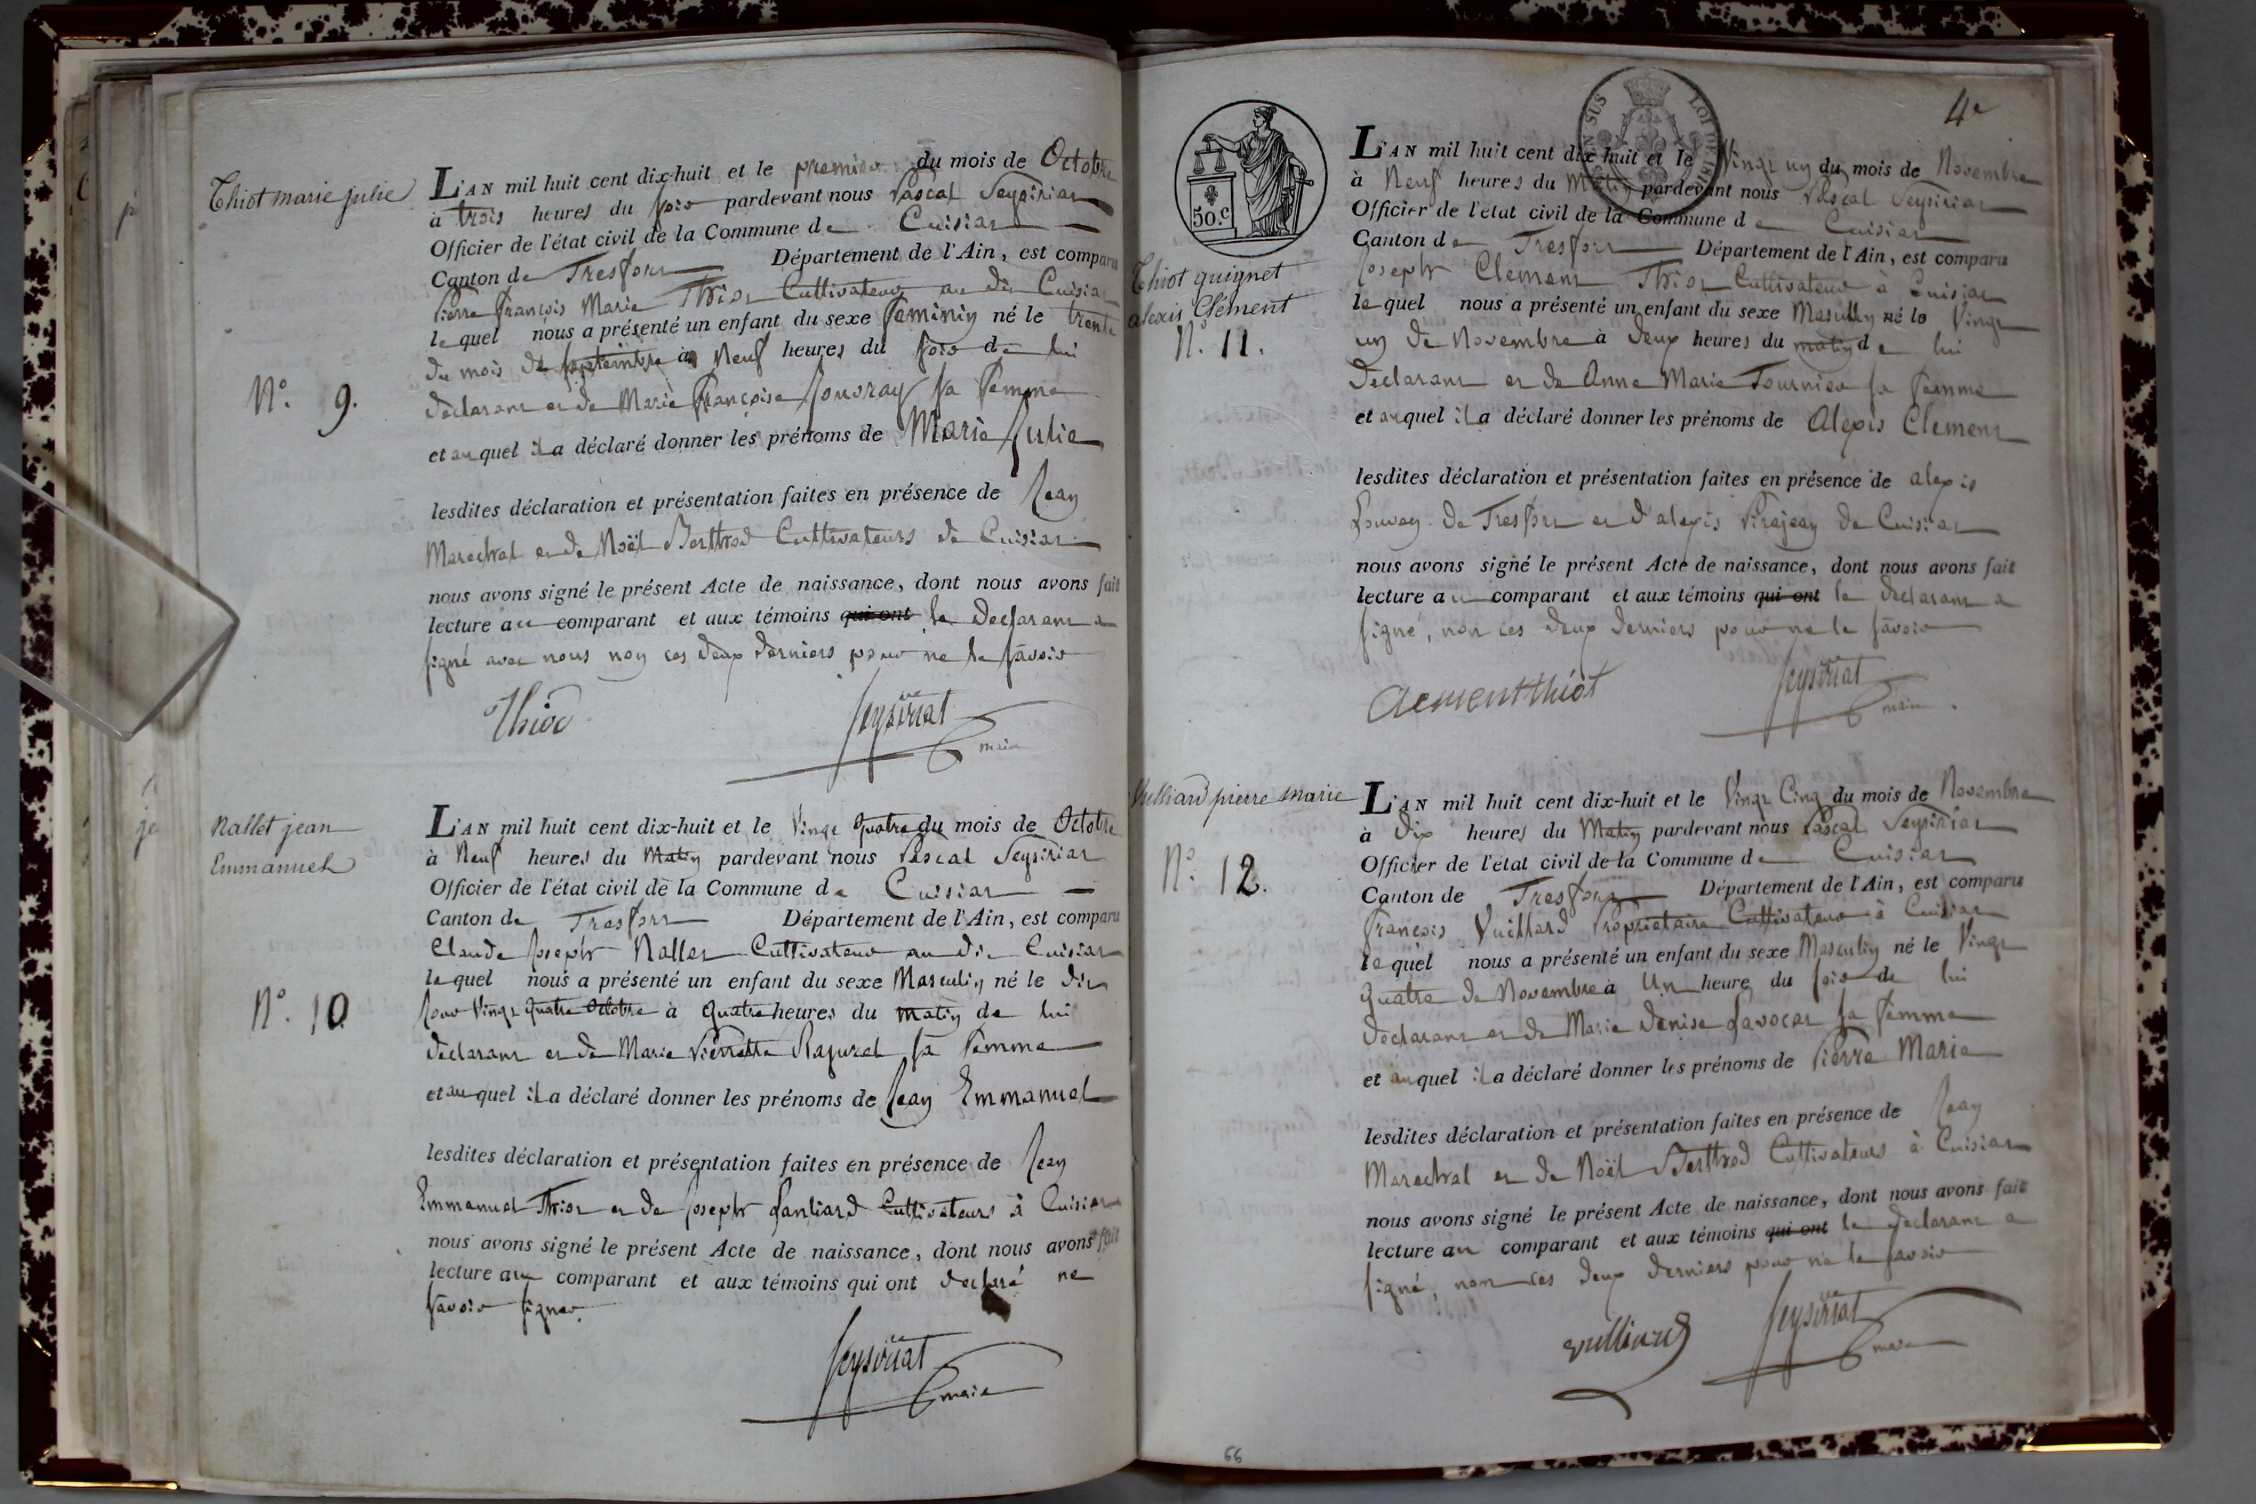 Thiot marie julie
N.° 9.
L'AN mil huit cent dix-huit et le premier du mois de Octobre
à trois heures du soir pardevant nous Pascal Seysiriat
Officier de l'état civil de la Commune de Cuisiat
Canton de Tresfort Département de l'Ain, est comparu
Pierre François Marie Thiot Cultivateur au dit Cuisiat
lequel nous a présenté un enfant du sexe feminin né le trente
du mois de septembre à Neuf heures du soir de lui
declarant et de Marie Françoise sa femme
et auquel il a déclaré donner les prénoms de Marie Julie
lesdites déclaration et présentation faites en présence de Jean
Marechal et de Noël Berthod Cultivateurs de Cuisiat
nous avons signé le présent Acte de naissance, dont nous avons fait
lecture au comparant et aux témoins qui ont le declarant a
signé avec nous non ces deux derniers pour ne le savoir
Thiod
Seysiriat
maire
Nallet jean
Emmanuel
N.° 10
L'AN mil huit cent dix-huit et le Vingt quatre du mois de Octobre
à Neuf heures du Matin pardevant nous Pascal Seysiriat
Officier de l'état civil de la Commune de Cuisiat
Canton de Tresfort Département de l'Ain, est comparu
Claude Joseph Nallet Cultivateur au dit Cuisiat
lequel nous a présenté un enfant du sexe Masculin né le dit
Jour Vingt quatre Octobre à quatre heures du matin de lui
declarant et de Marie Pierrette sa femme
et auquel il a déclaré donner les prénoms de Jean Emmanuel
lesdites déclaration et présentation faites en présence de Jean
Emmanuel Thiot et de Joseph Cultivateurs à Cuisiat
nous avons signé le présent Acte de naissance, dont nous avons fait
lecture au comparant et aux témoins qui ont declaré ne
savoir signer.
Seysiriat
maire
4e
50.c
Thiot quignet
alexis Clément
N.° 11.
L'AN mil huit cent dix huit et le Vingt un du mois de Novembre
à Neuf heures du Matin pardevant nous Pascal Seysiriat
Officier de l'état civil de la Commune de Cuisiat
Canton de Tresfort Département de l'Ain, est comparu
Joseph Clement Thiot Cultivateur à Cuisiat
lequel nous a présenté un enfant du sexe Masculin né le Vingt
un de Novembre à deux heures du matin de lui
declarant et de Anne Marie Tournier sa femme
et auquel il a déclaré donner les prénoms de Alexis Clement
lesdites déclaration et présentation faites en présence de alexis
de Tresfort et d'alexis Pirajean de Cuisiat
nous avons signé le présent Acte de naissance, dont nous avons fait
lecture au comparant et aux témoins qui ont le declarant a
signé, non ces deux derniers pour ne le savoir
clementthiot
Seysiriat
maire
Vulliard pierre marie
N.° 12.
L'AN mil huit cent dix-huit et le Vingt Cinq du mois de Novembre
à Dix heures du Matin pardevant nous Pascal Seysiriat
Officier de l'état civil de la Commune de Cuisiat
Canton de Tresfort Département de l'Ain, est comparu
François Vuilliard Proprietaire Cultivateur à Cuisiat
lequel nous a présenté un enfant du sexe Masculin né le Vingt
quatre de Novembre à Un heure du soir de lui
declarant et de Marie Denise Javocat sa femme
et auquel il a déclaré donner les prénoms de Pierre Marie
lesdites déclaration et présentation faites en présence de Jean
Marechal et de Noël Berthod Cultivateurs à Cuisiat
nous avons signé le présent Acte de naissance, dont nous avons fait
lecture au comparant et aux témoins qui ont le declarant a
signé, non ces deux derniers pour ne le savoir
vulliard
Seysiriat
maire
66